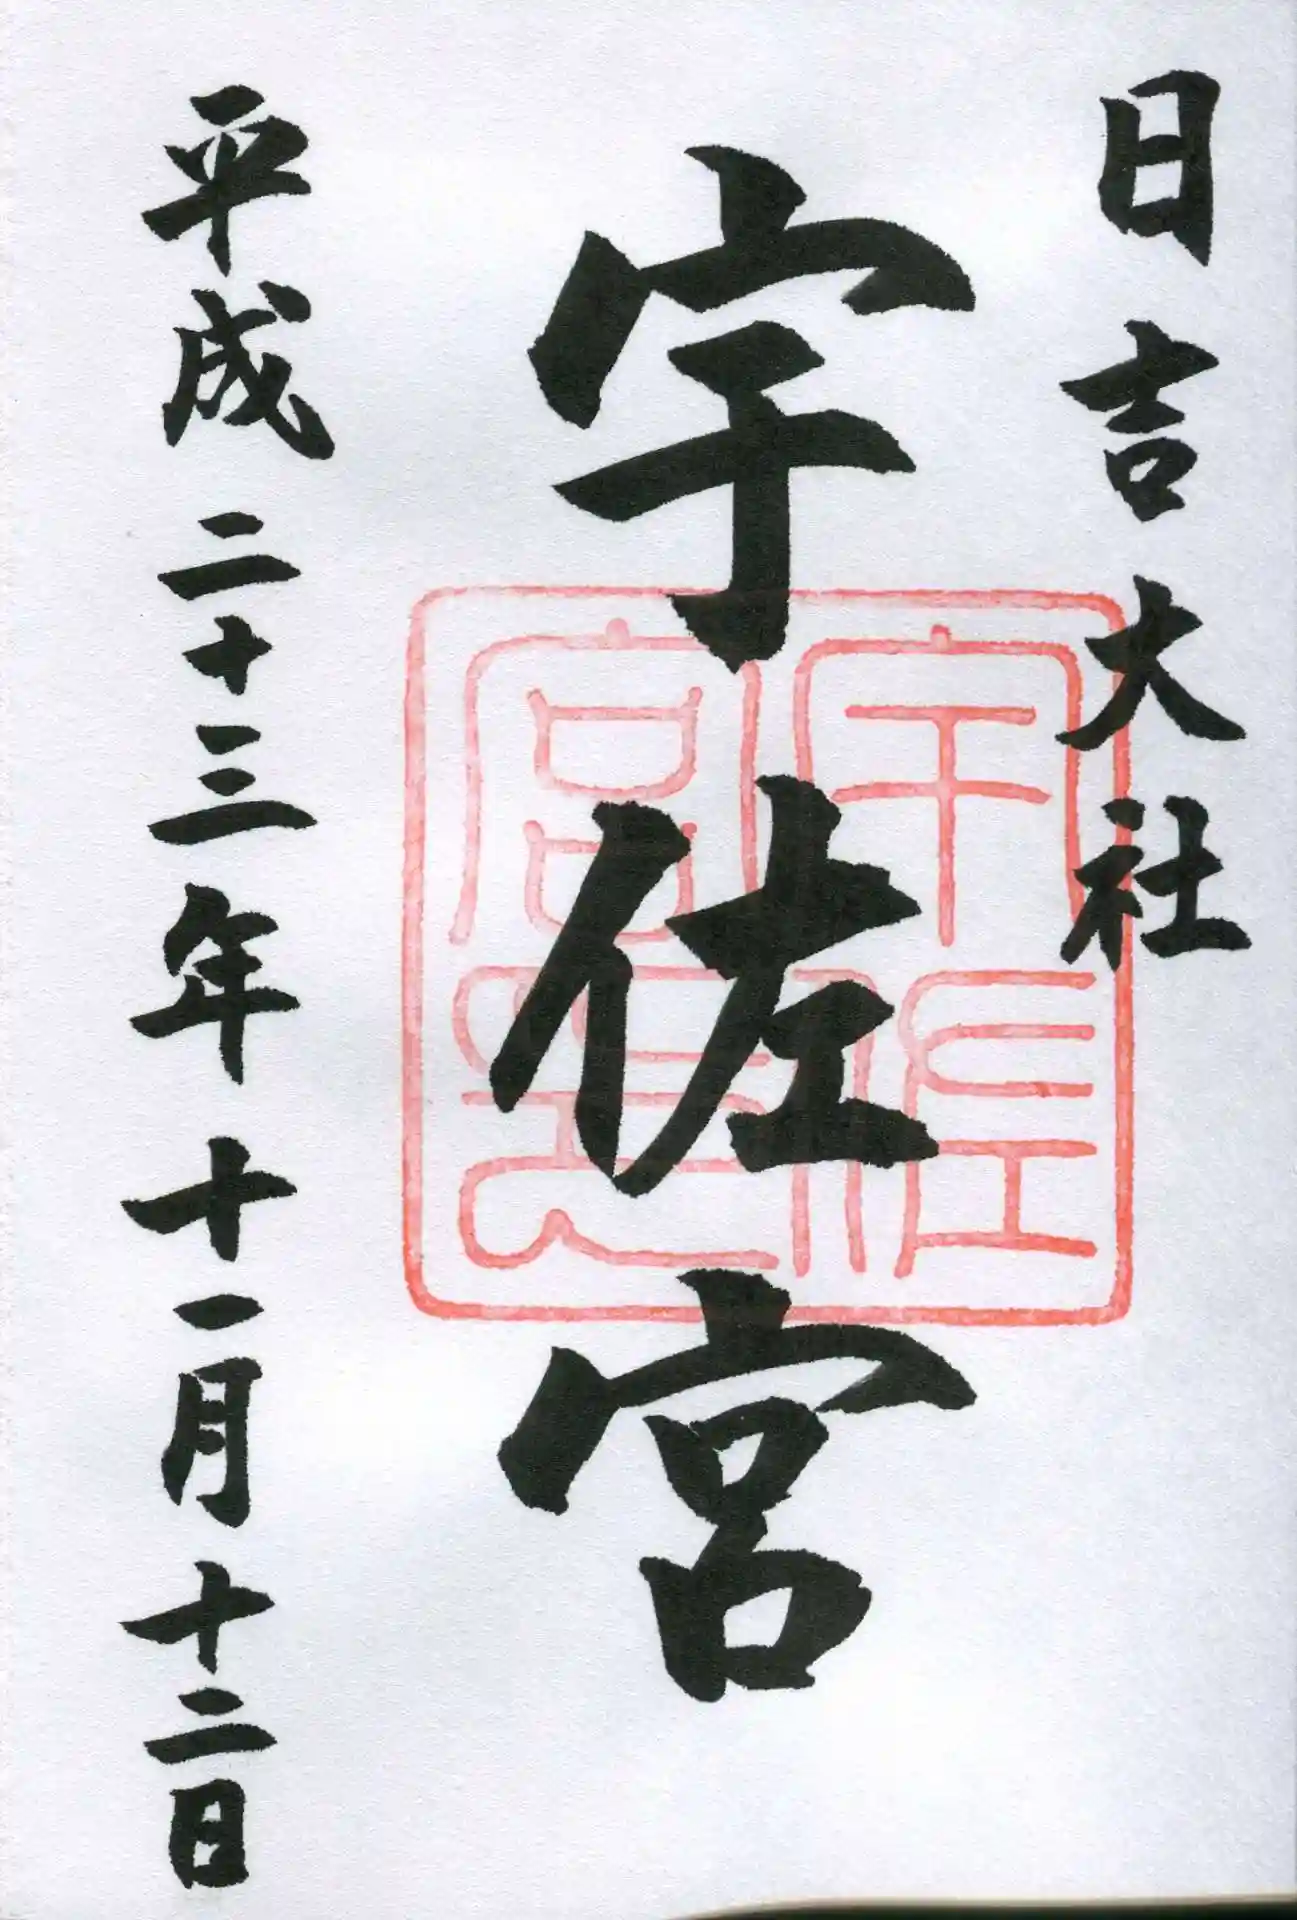 日吉大社
宇佐宮
宇佐宮印
平成二十三年十一月十二日